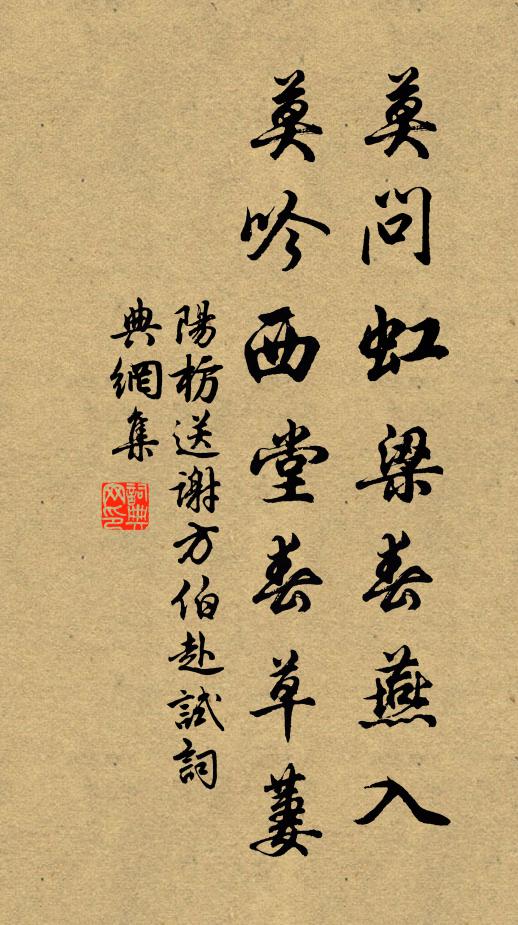 莫問虹梁春燕入
莫吟西堂春草萋
陽枋送謝方伯赴試詞
典網集
詞典
网印